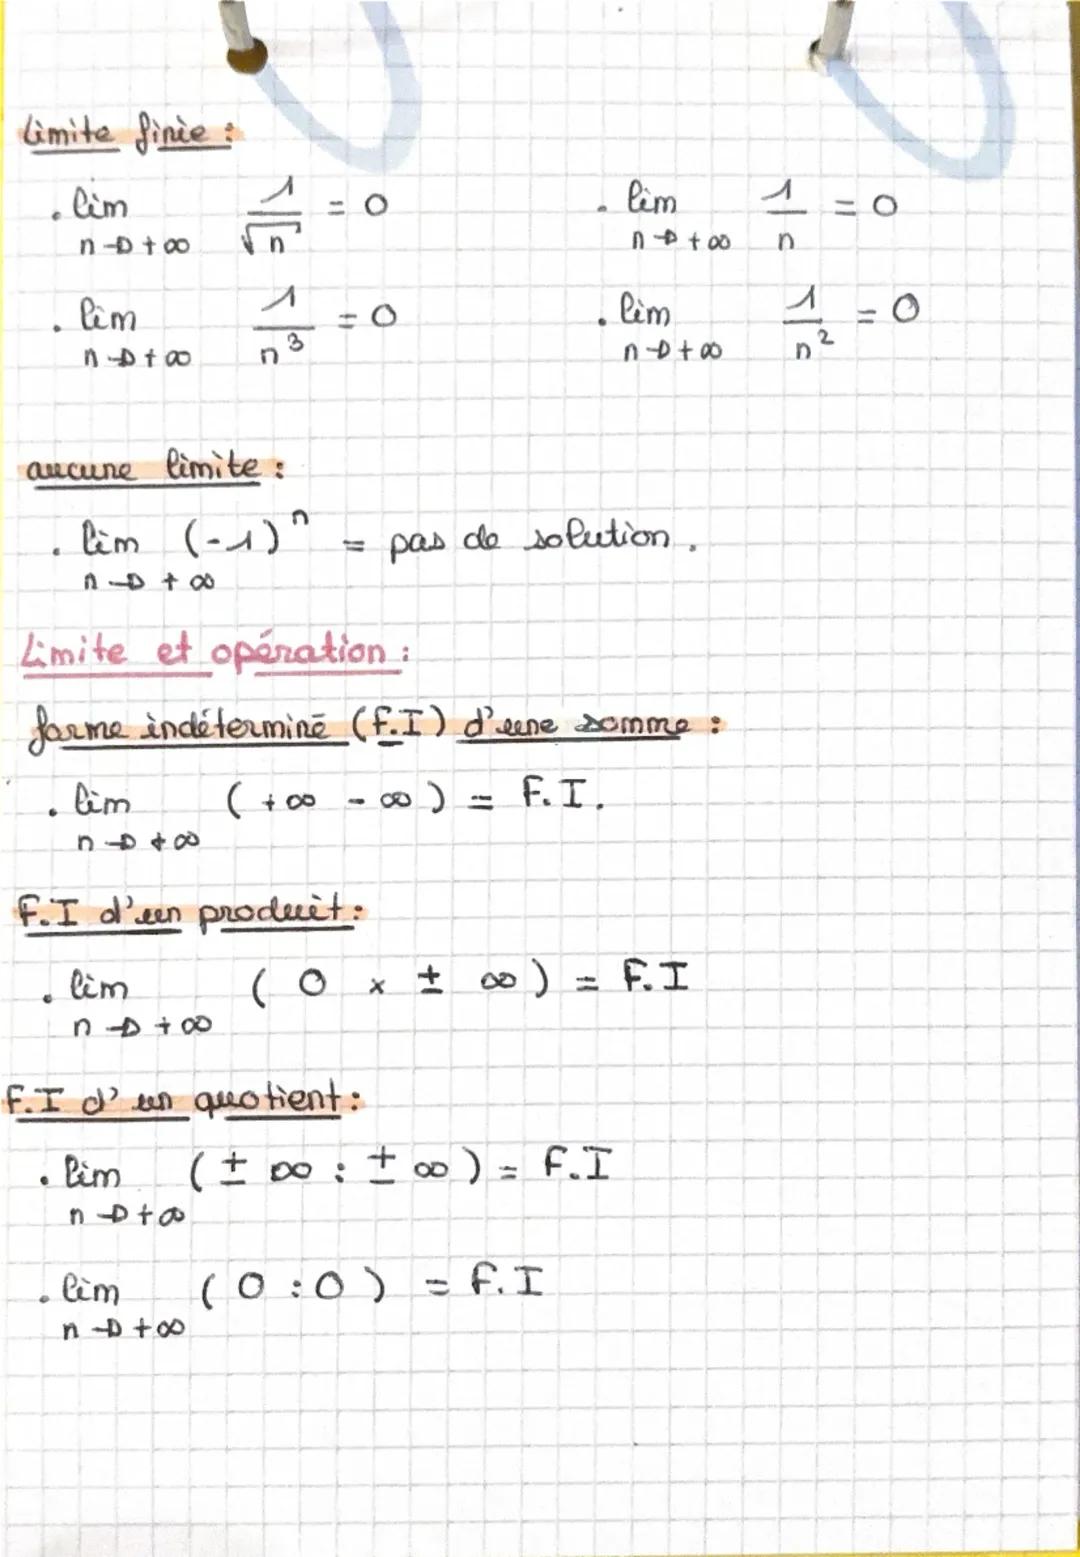 Limite finie :
. lim 1/√n = 0 . lim 1/n = 0
n→+∞ n→+∞
. lim 1/n³ = 0 . lim 1/n² = 0
n→+∞ n→+∞
aucune limite :
. lim (-1)ⁿ = pas de solution.
n→+∞
Limite et opération :
forme indéterminé (F.I) d'une somme :
. lim (+∞ - ∞) = F.I.
n→+∞
F.I d'un produit :
. lim (0 × ± ∞) = F.I
n→+∞
F.I d'un quotient :
. lim (± ∞ : ± ∞) = F.I
n→+∞
. lim (0 : 0) = F.I
n→+∞